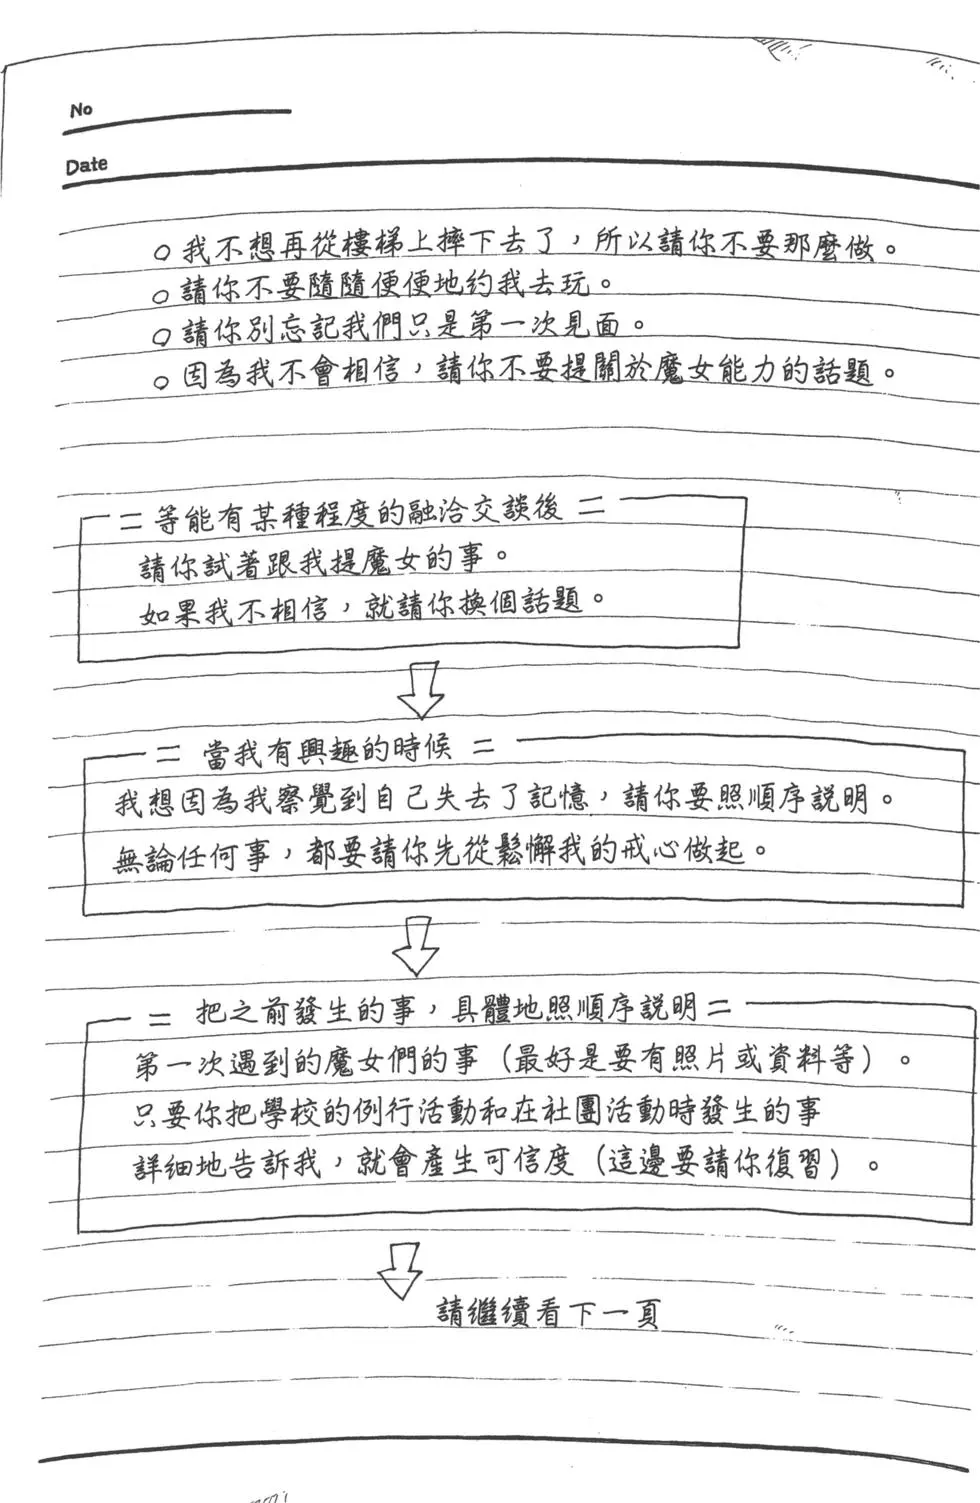 No
Date
○我不想再從樓梯上摔下去了，所以請你不要那麼做。
○請你不要隨隨便便地約我去玩。
○請你別忘記我們只是第一次見面。
○因為我不會相信，請你不要提關於魔女能力的話題。
＝等能有某種程度的融洽交談後＝
請你試著跟我提魔女的事。
如果我不相信，就請你換個話題。
＝當我有興趣的時候＝
我想因為我察覺到自己失去了記憶，請你要照順序說明。
無論任何事，都要請你先從鬆懈我的戒心做起。
＝把之前發生的事，具體地照順序說明＝
第一次遇到的魔女們的事（最好是要有照片或資料等）。
只要你把學校的例行活動和在社團活動時發生的事
詳細地告訴我，就會產生可信度（這邊要請你復習）。
請繼續看下一頁